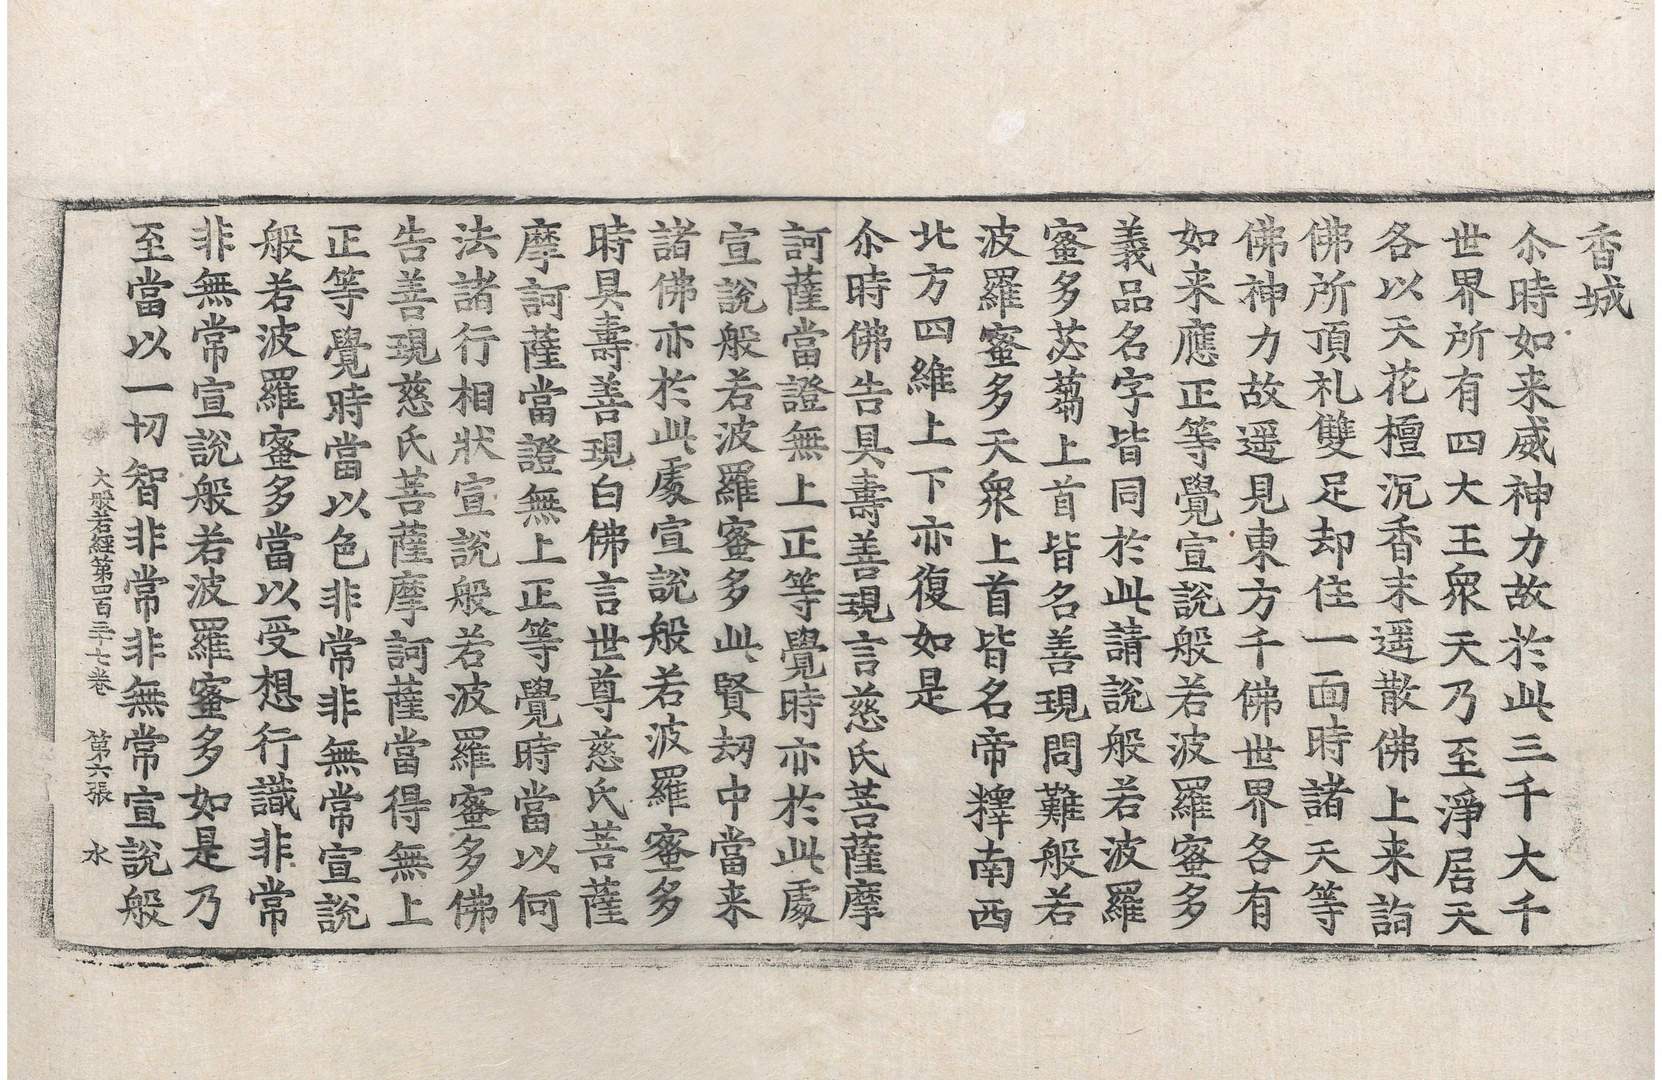 香城
尒時如来威神力故於此三千大千
世界所有四大王衆天乃至淨居天
各以天花檀沉香末遥散佛上来詣
佛所頂礼雙足却住一面時諸天等
佛神力故遥見東方千佛世界各有
如来應正等覺宣說般若波羅蜜多
義品名字皆同於此請說般若波羅
蜜多苾蒭上首皆名善現問難般若
波羅蜜多天衆上首皆名帝釋南西
北方四維上下亦復如是
尒時佛告具壽善現言慈氏菩薩摩
訶薩當證無上正等覺時亦於此處
宣說般若波羅蜜多此賢劫中當来
諸佛亦於此處宣說般若波羅蜜多
時具壽善現白佛言世尊慈氏菩薩
摩訶薩當證無上正等覺時當以何
法諸行相狀宣說般若波羅蜜多佛
告善現慈氏菩薩摩訶薩當得無上
正等覺時當以色非常非無常宣說
般若波羅蜜多當以受想行識非常
非無常宣說般若波羅蜜多如是乃
至當以一切智非常非無常宣說般
大般若經第四百三十七卷 第六張 水